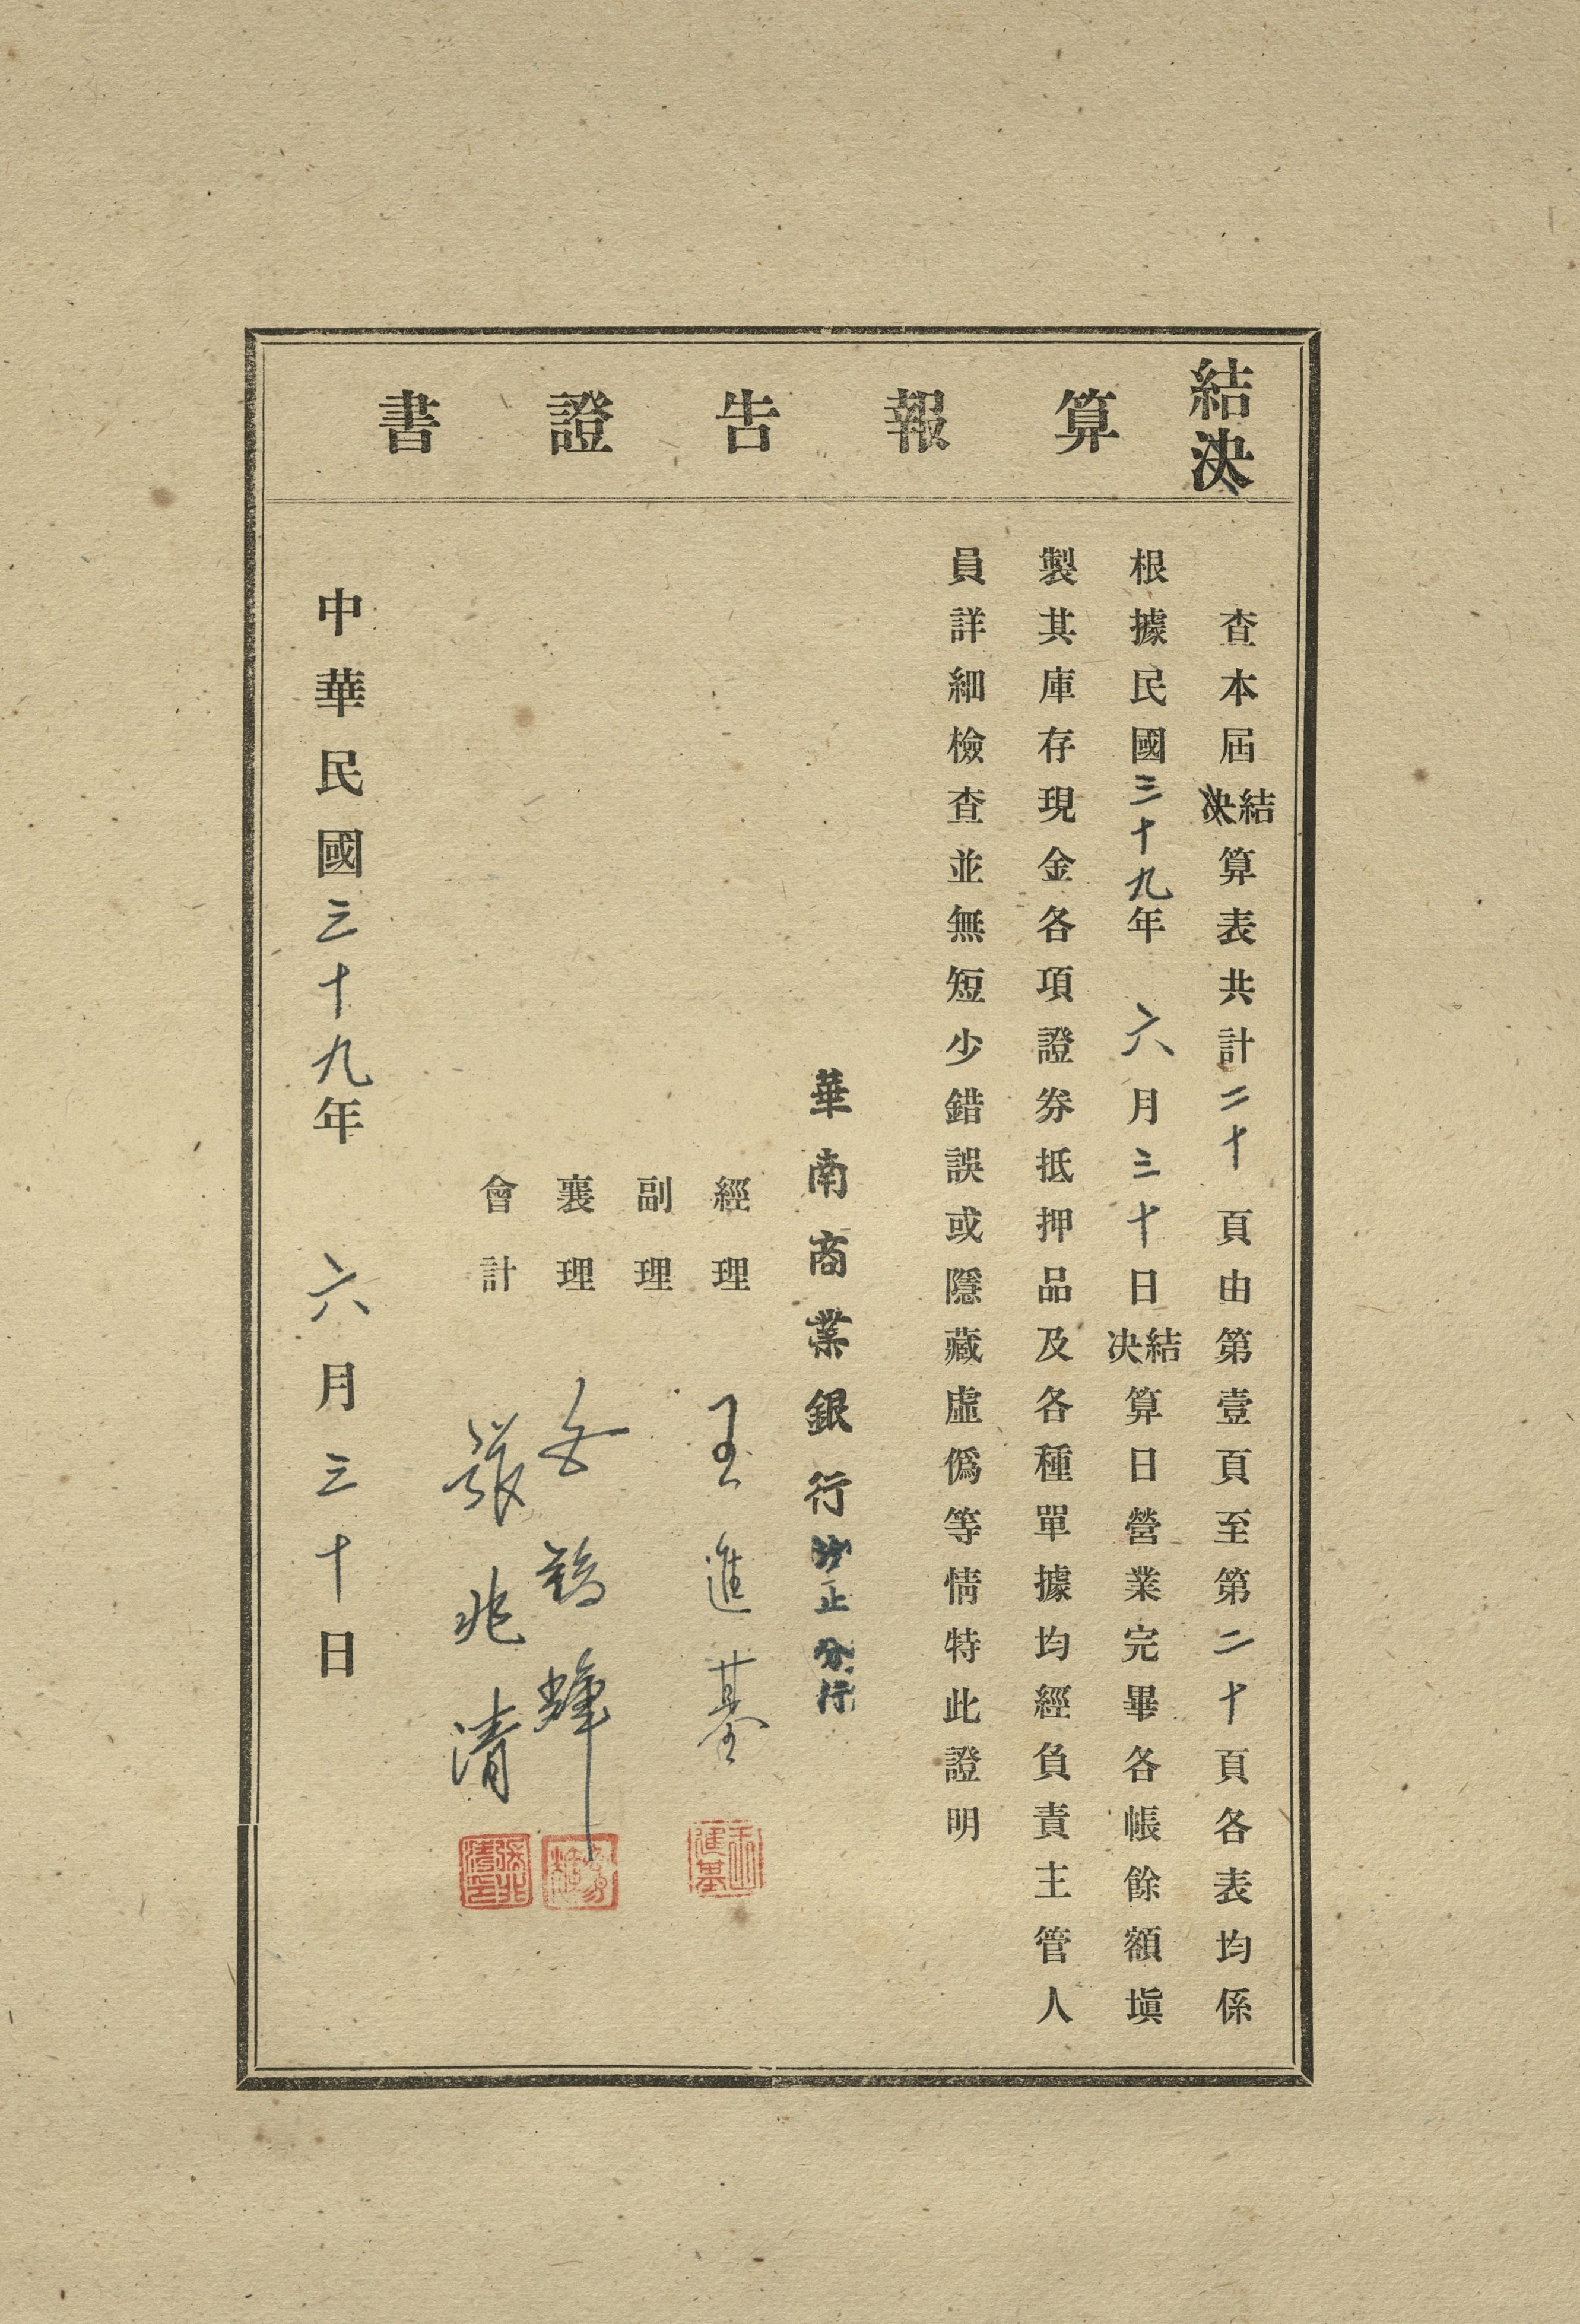 結決算報告證書
查本屆結決算表共計二十頁由第壹頁至第二十頁各表均係
根據民國三十九年六月三十日結決算日營業完畢各帳餘額塡
製其庫存現金各項證券抵押品及各種單據均經負責主管人
員詳細檢查並無短少錯誤或隱藏虛僞等情特此證明
華南商業銀行汐止分行
經理 王進基
副理
襄理 輝
會計 張兆清
中華民國三十九年六月三十日
王進基
張兆清印